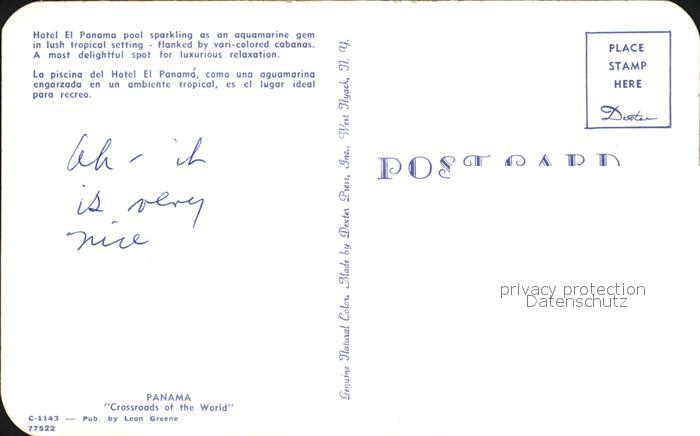 Hotel El Panama pool sparkling as an aquamarine gem
in lush tropical setting - flanked by vari-colored cabanas.
A most delightful spot for luxurious relaxation.
La piscina del Hotel El Panamá, como una aguamarina
engarzada en un ambiente tropical, es el lugar ideal
para recreo.
Ah - it
is very
nice
PANAMA
"Crossroads of the World"
C-1143 — Pub. by Leon Greene
77522
Genuine Natural Color, Made by Dexter Press, Inc., West Nyack, N. Y.
PLACE
STAMP
HERE
Dexter
POST CARD
privacy protection
Datenschutz